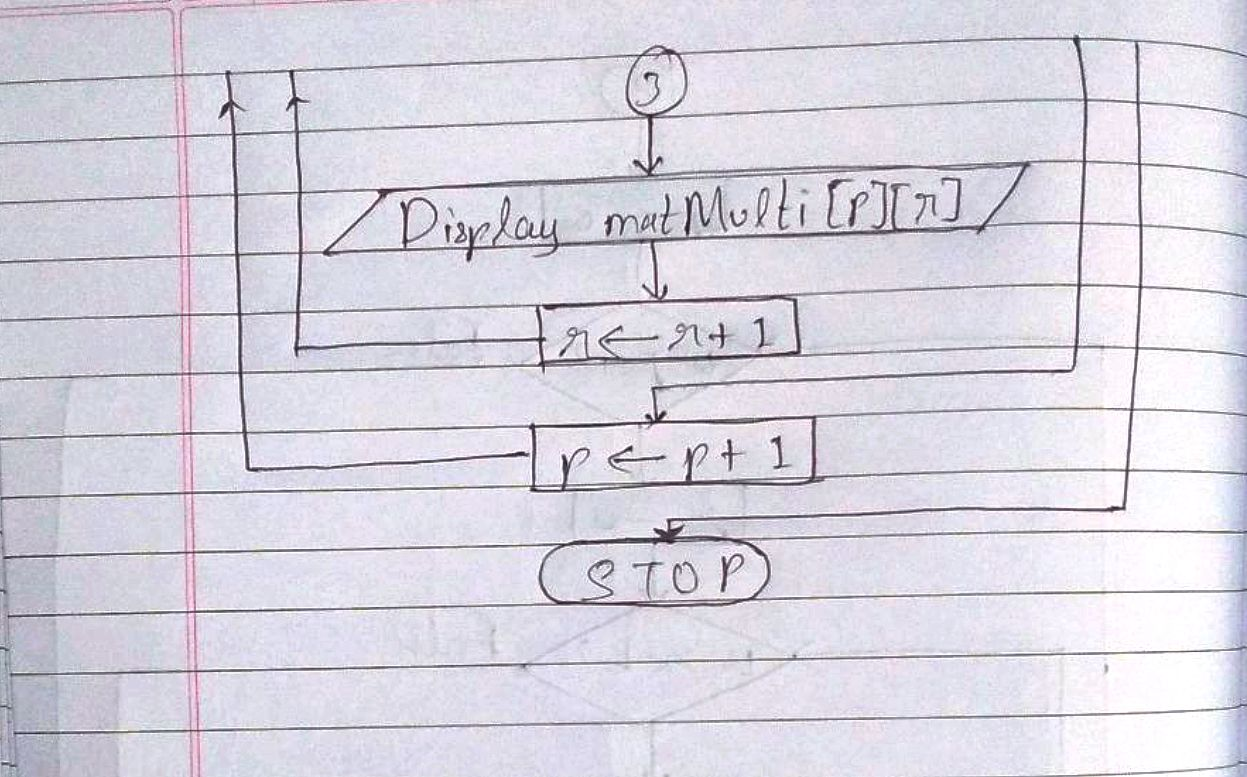 3
Display matMulti[p][r]
r ← r + 1
p ← p + 1
STOP